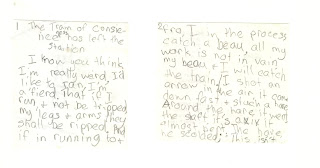 1 The Train of Consie-
nce has left the
station
I know you think
I'm really weird, I'd
like to
a fiend, that if I
run, + not be tripped
my legs + arms they
shall be ripped. And
if in running to +
2 fro, I in the process
catch a beau, all my
work is not in vain
my beau + I will catch
the train. I shot an
arrow in the air it came
down fast + stuck a hare
Around the hare it went
the shaft it's axis +
almost bent. the hare
he scolded; This isn't